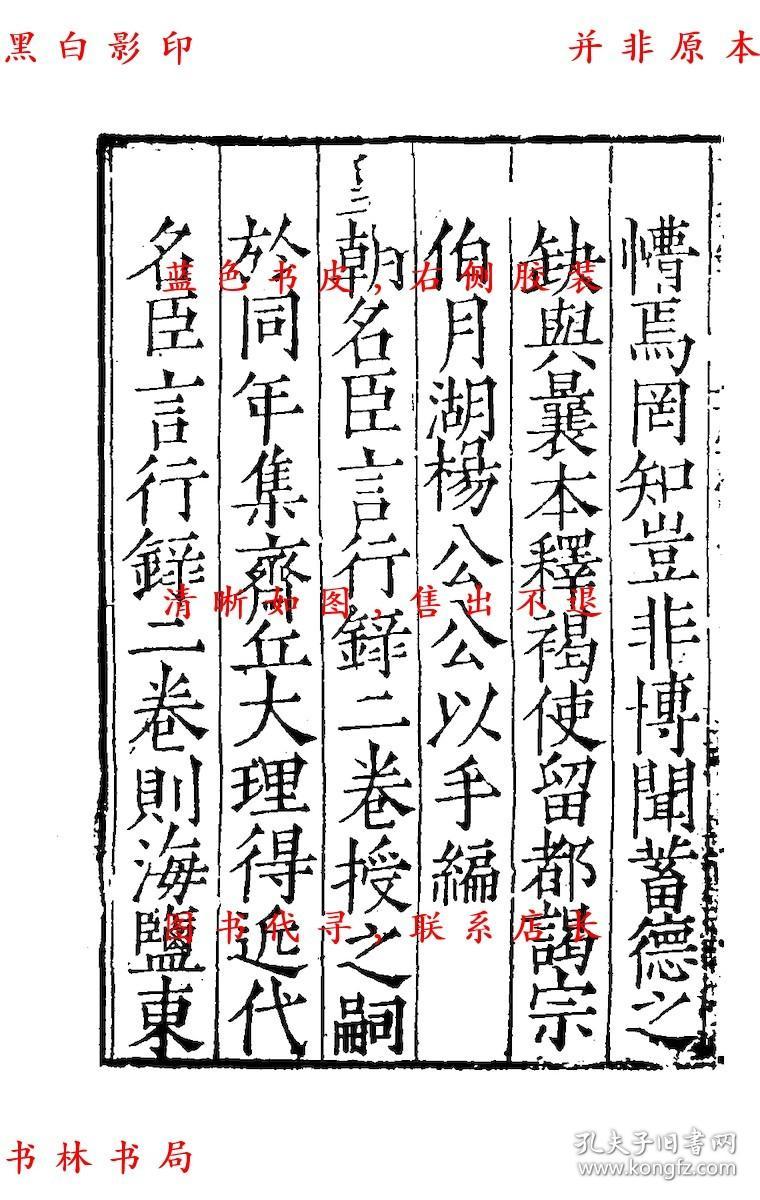 黑白影印
并非原本
懵焉罔知豈非博聞蓄德之
缺與曩本釋褐使留都謁宗
伯月湖楊公公以手編
朝名臣言行錄二卷授之嗣
於同年集齋丘大理得近代
名臣言行錄二卷則海鹽東
蓝色书皮,右侧胶装
清晰如图,售出不退
图书代寻,联系店长
书林书局
孔夫子旧书网
www.kongfz.com